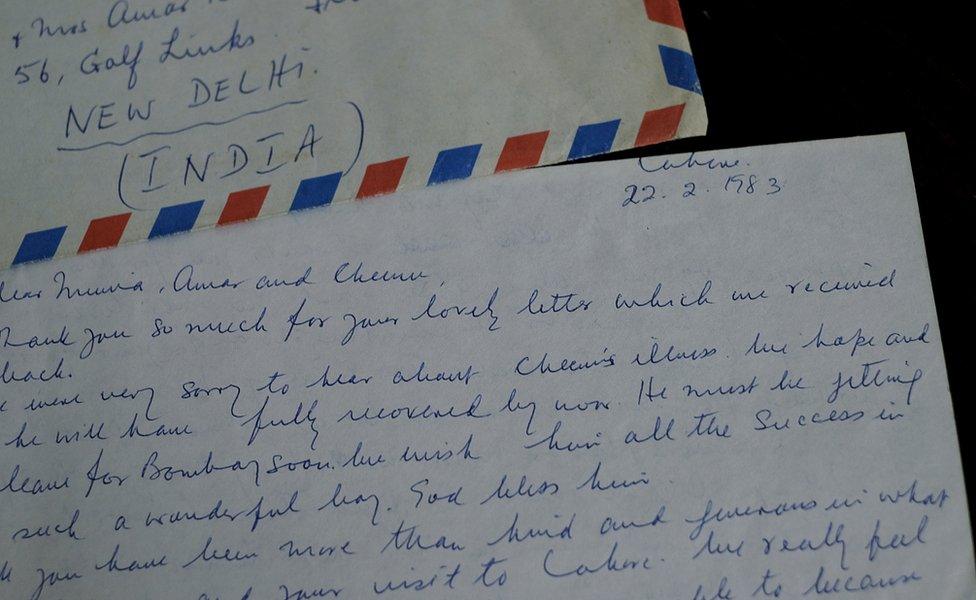 + Mrs Amar
56, Golf Links
NEW DELHI.
(INDIA)
Lahore.
22. 2. 1983
Dear Munia, Amar and Cheenu,
Thank you so much for your lovely letter which we received
back.
were very sorry to hear about Cheenu's illness. We hope and
he will have fully recovered by now. He must be getting
leave for Bombay soon. We wish him all the success in
such a wonderful boy. God bless him.
you have been more than kind and generous in what
and your visit to Lahore. We really feel
to because